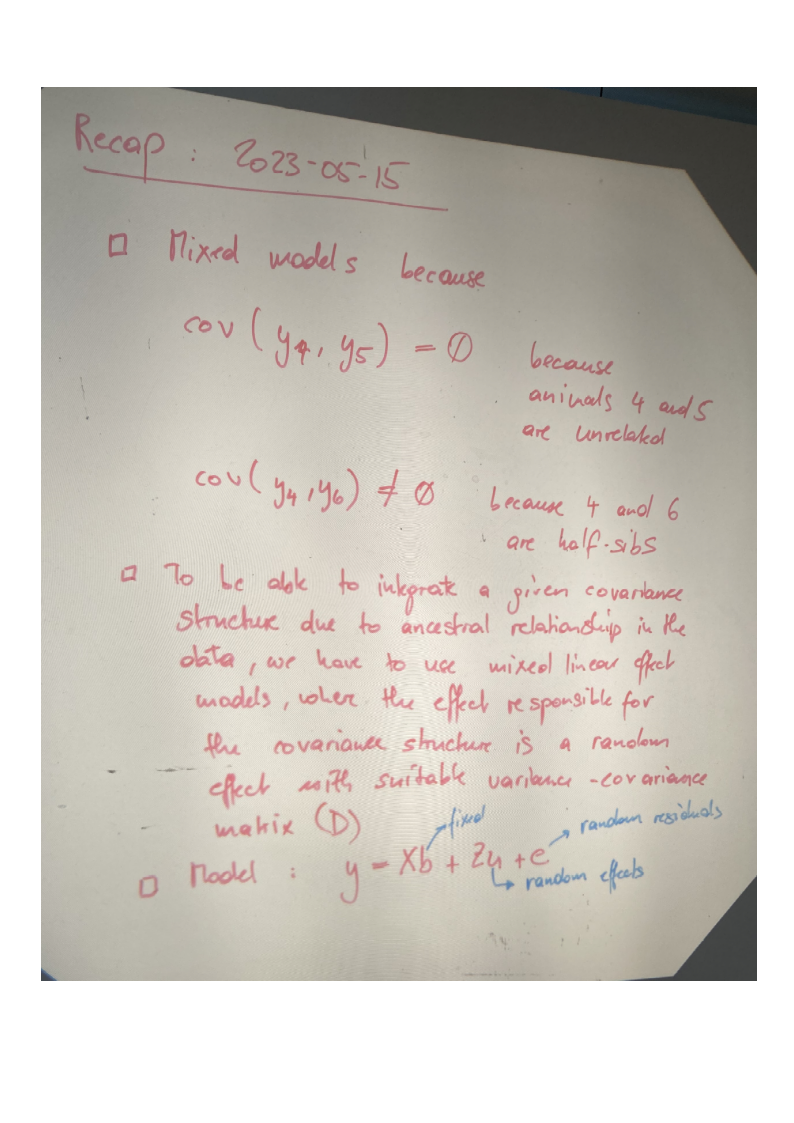 Recap : 2023-05-15
□ Mixed models because
cov(y4, y5) = ∅ because
animals 4 and 5
are unrelated
cov(y4, y6) ≠ ∅ because 4 and 6
are half-sibs
□ To be able to integrate a given covariance
structure due to ancestral relationship in the
data, we have to use mixed linear effect
models, where the effect responsible for
the covariance structure is a random
effect with suitable variance-covariance
matrix (D)
fixed
random residuals
□ Model : y = Xb + Zu + e
random effects